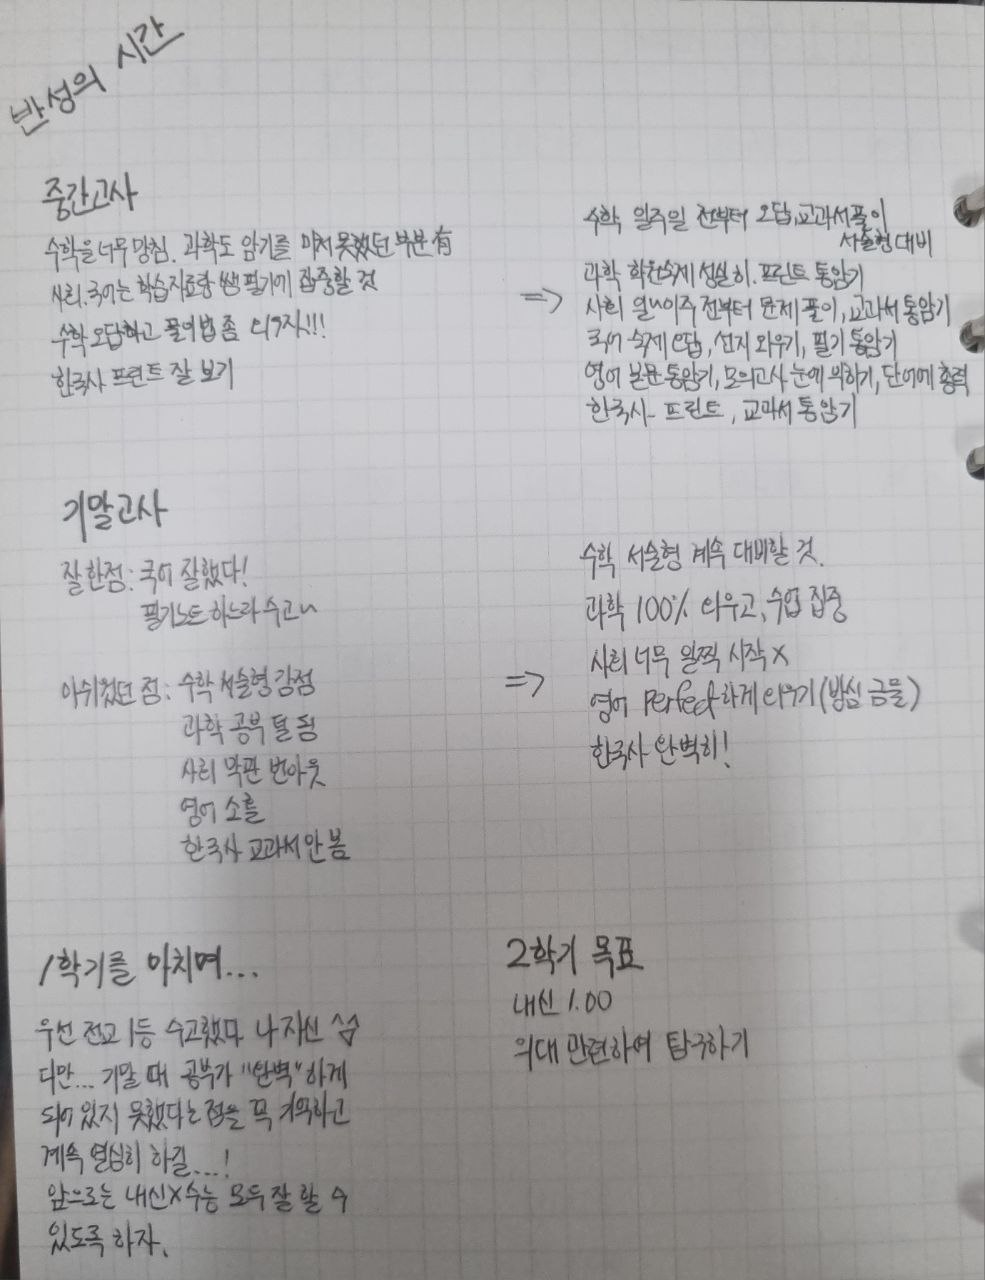 반성의 시간
중간고사
수학을 너무 망침. 과학도 암기를 미처 못했던 부분 有
사회.국어는 학습지료랑 쌤 필기에 집중할 것
수학 오답하고 풀이법 좀 외우자!!!
한국사 프린트 잘 보기
=>
수학 일주일 전부터 오답,교과서풀이
서술형 대비
과학 학원숙제 성실히. 프린트 통암기
사회 일~이주 전부터 문제 풀이, 교과서 통암기
국어 숙제 오답, 선지 외우기, 필기 통암기
영어 본문 통암기, 모의고사 눈에 익히기, 단어에 총력
한국사- 프린트, 교과서 통암기
기말고사
잘한점: 국어 잘했다!
필기노트 하느라 수고~
아쉬웠던 점: 수학 서술형 감점
과학 공부 덜 됨
사회 막판 번아웃
영어 소홀
한국사 교과서 안 봄
=>
수학 서술형 계속 대비할 것.
과학 100% 외우고, 수업 집중
사회 너무 일찍 시작 x
영어 Perfect하게 외우기 (방심 금물)
한국사 완벽히!
1학기를 마치며...
우선 전교 1등 수고했다 나 자신 ^^
다만... 기말 때 공부가 "완벽"하게
되어 있지 못했다는 점을 꼭 기억하고
계속 열심히 하길...!
앞으로는 내신x수능 모두 잘 할 수
있도록 하자.
2학기 목표
내신 1.00
의대 관련하여 탐구하기